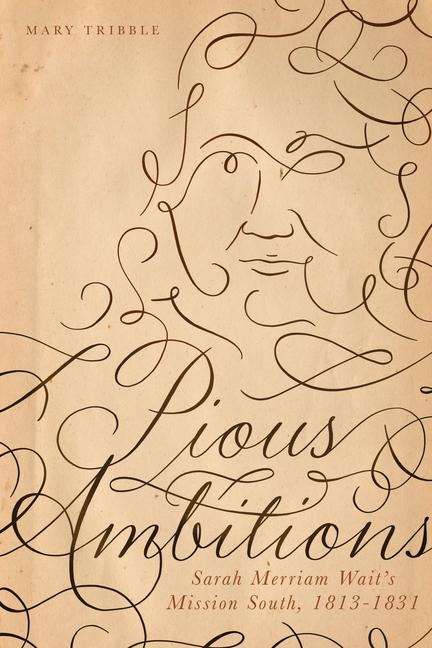 MARY TRIBBLE
Pious
Ambitions
Sarah Merriam Wait's
Mission South, 1813-1831